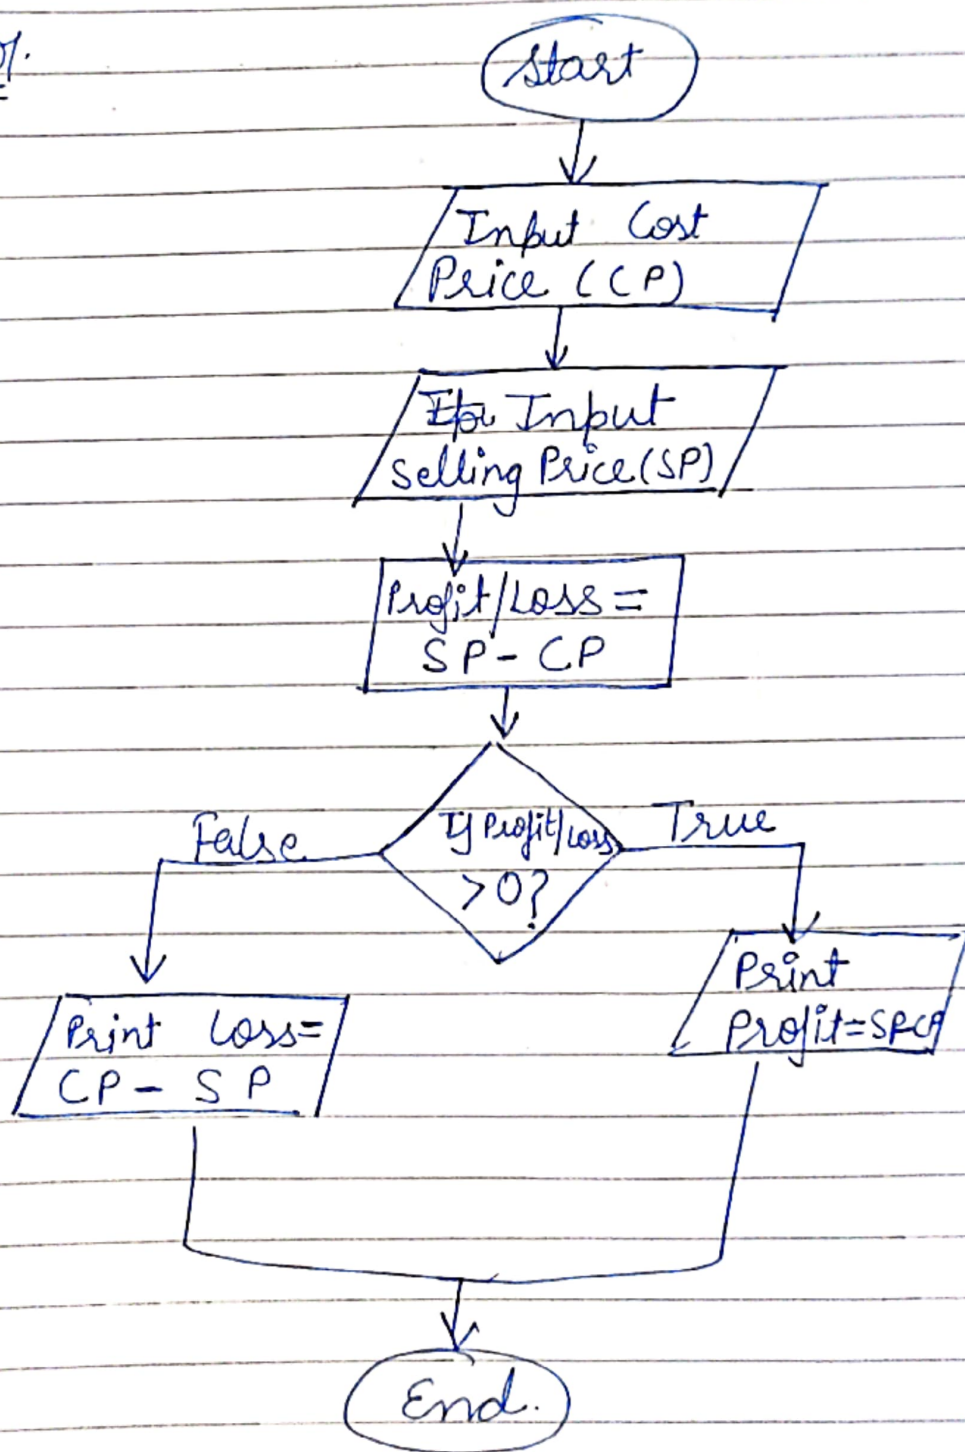 Start
Input Cost
Price (CP)
Input
Selling Price (SP)
Profit/Loss =
SP - CP
False
If Profit/Loss
> 0?
True
Print
Profit = SP-CP
Print Loss =
CP - SP
End.